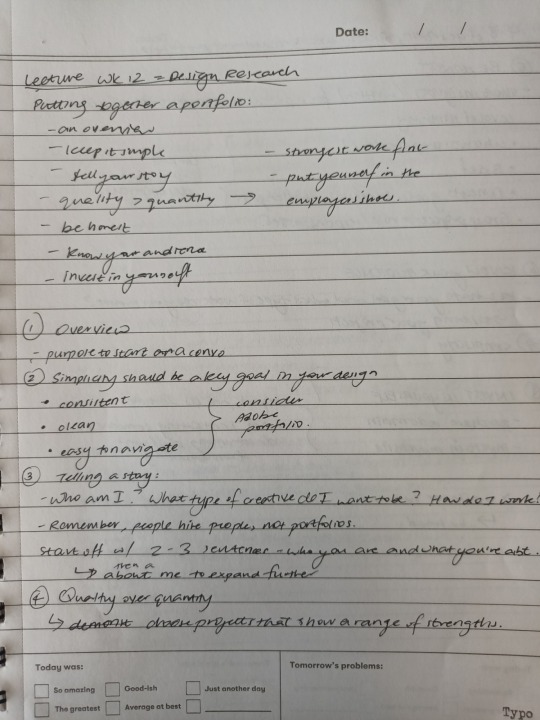 Date: / /
Lecture WK 12 = Design Research
Putting together a portfolio:
- an overview
- keep it simple
- tell your story
- quality > quantity →
- be honest
- know your audience
- invest in yourself
- strongest work first
- put yourself in the
employers shoes.
① Overview
- purpose to start a convo
② Simplicity should be a key goal in your design
• consistent
• clean
• easy to navigate
consider
Adobe
portfolio.
③ Telling a story:
- Who am I? What type of creative do I want to be? How do I work?
- Remember, people hire people, not portfolios.
Start off w/ 2-3 sentence - who you are and what you're abt.
then a
↳ about me to expand further
④ Quality over quantity
↳ choose projects that show a range of strengths.
Today was:
So amazing
Good-ish
Just another day
The greatest
Average at best
Tomorrow's problems:
Typo